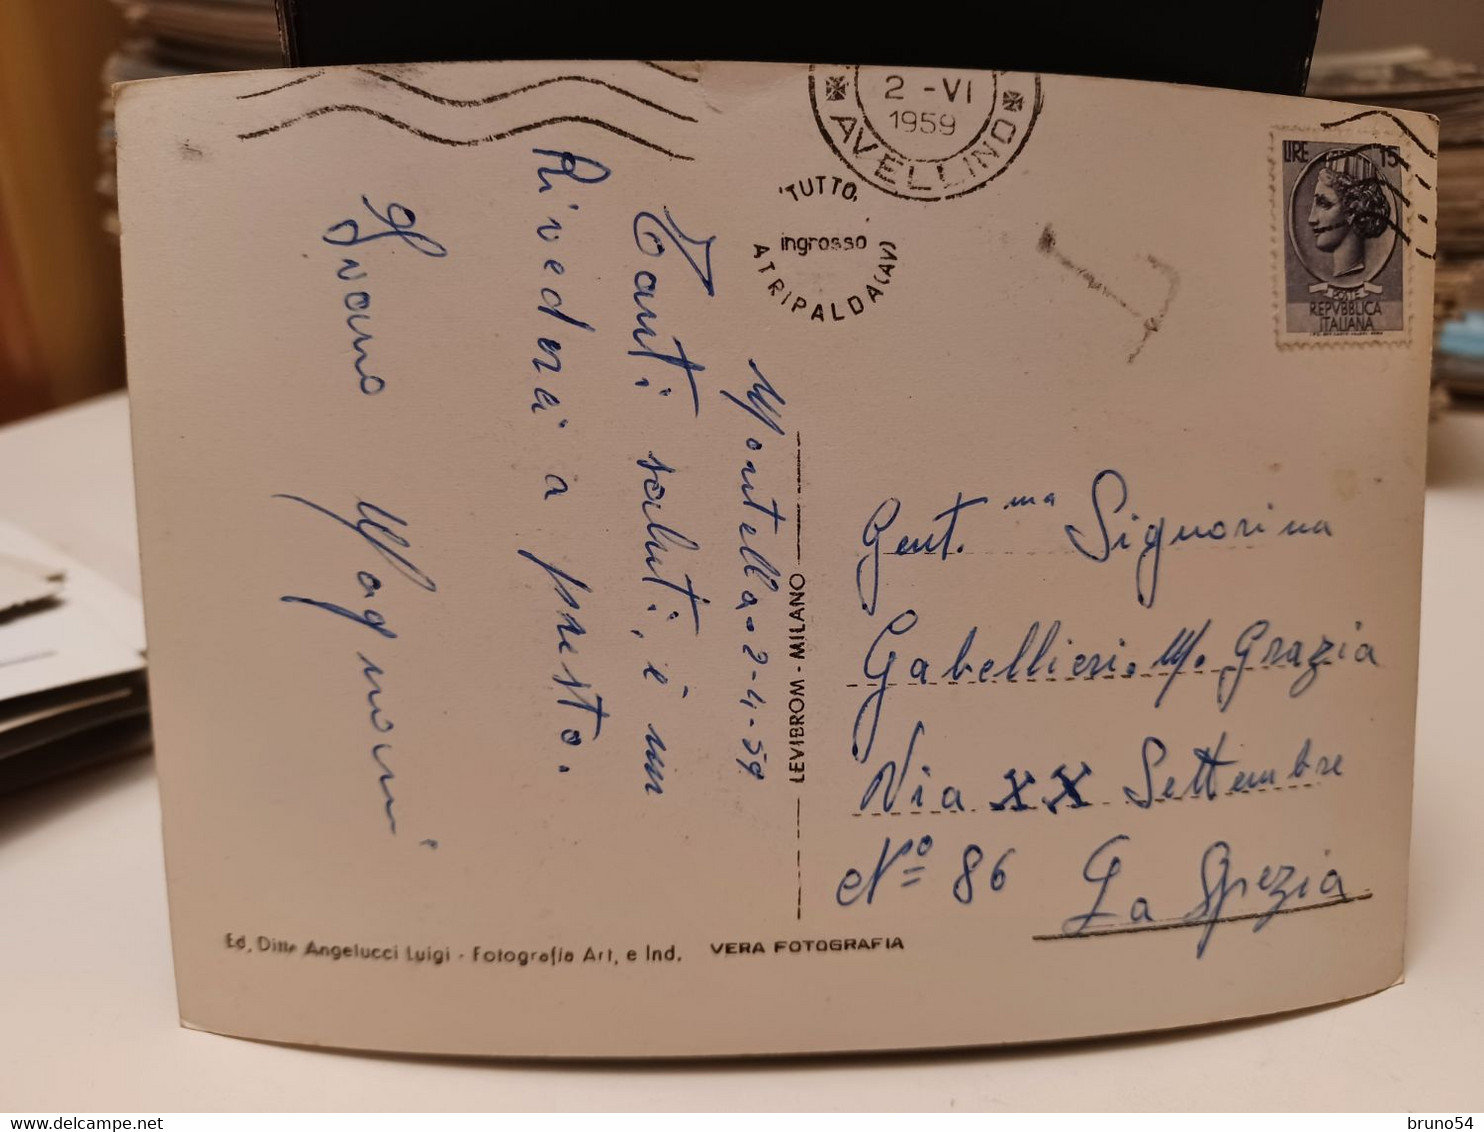 2 - VI
1959
AVELLINO
TUTTO,
ingrosso
ATRIPALDA (AV)
LIRE 15
POSTE
REPVBBLICA
ITALIANA
T
Montella. 2-4-59
Tanti saluti, è un
Rivederci a presto.
Ivano Magnani
LEVIBROM - MILANO
Gent.ma Signorina
Gabellieri. M. Grazia
Via XX Settembre
N° 86 La Spezia
Ed. Ditta Angelucci Luigi - Fotografia Art. e Ind. VERA FOTOGRAFIA
bruno54